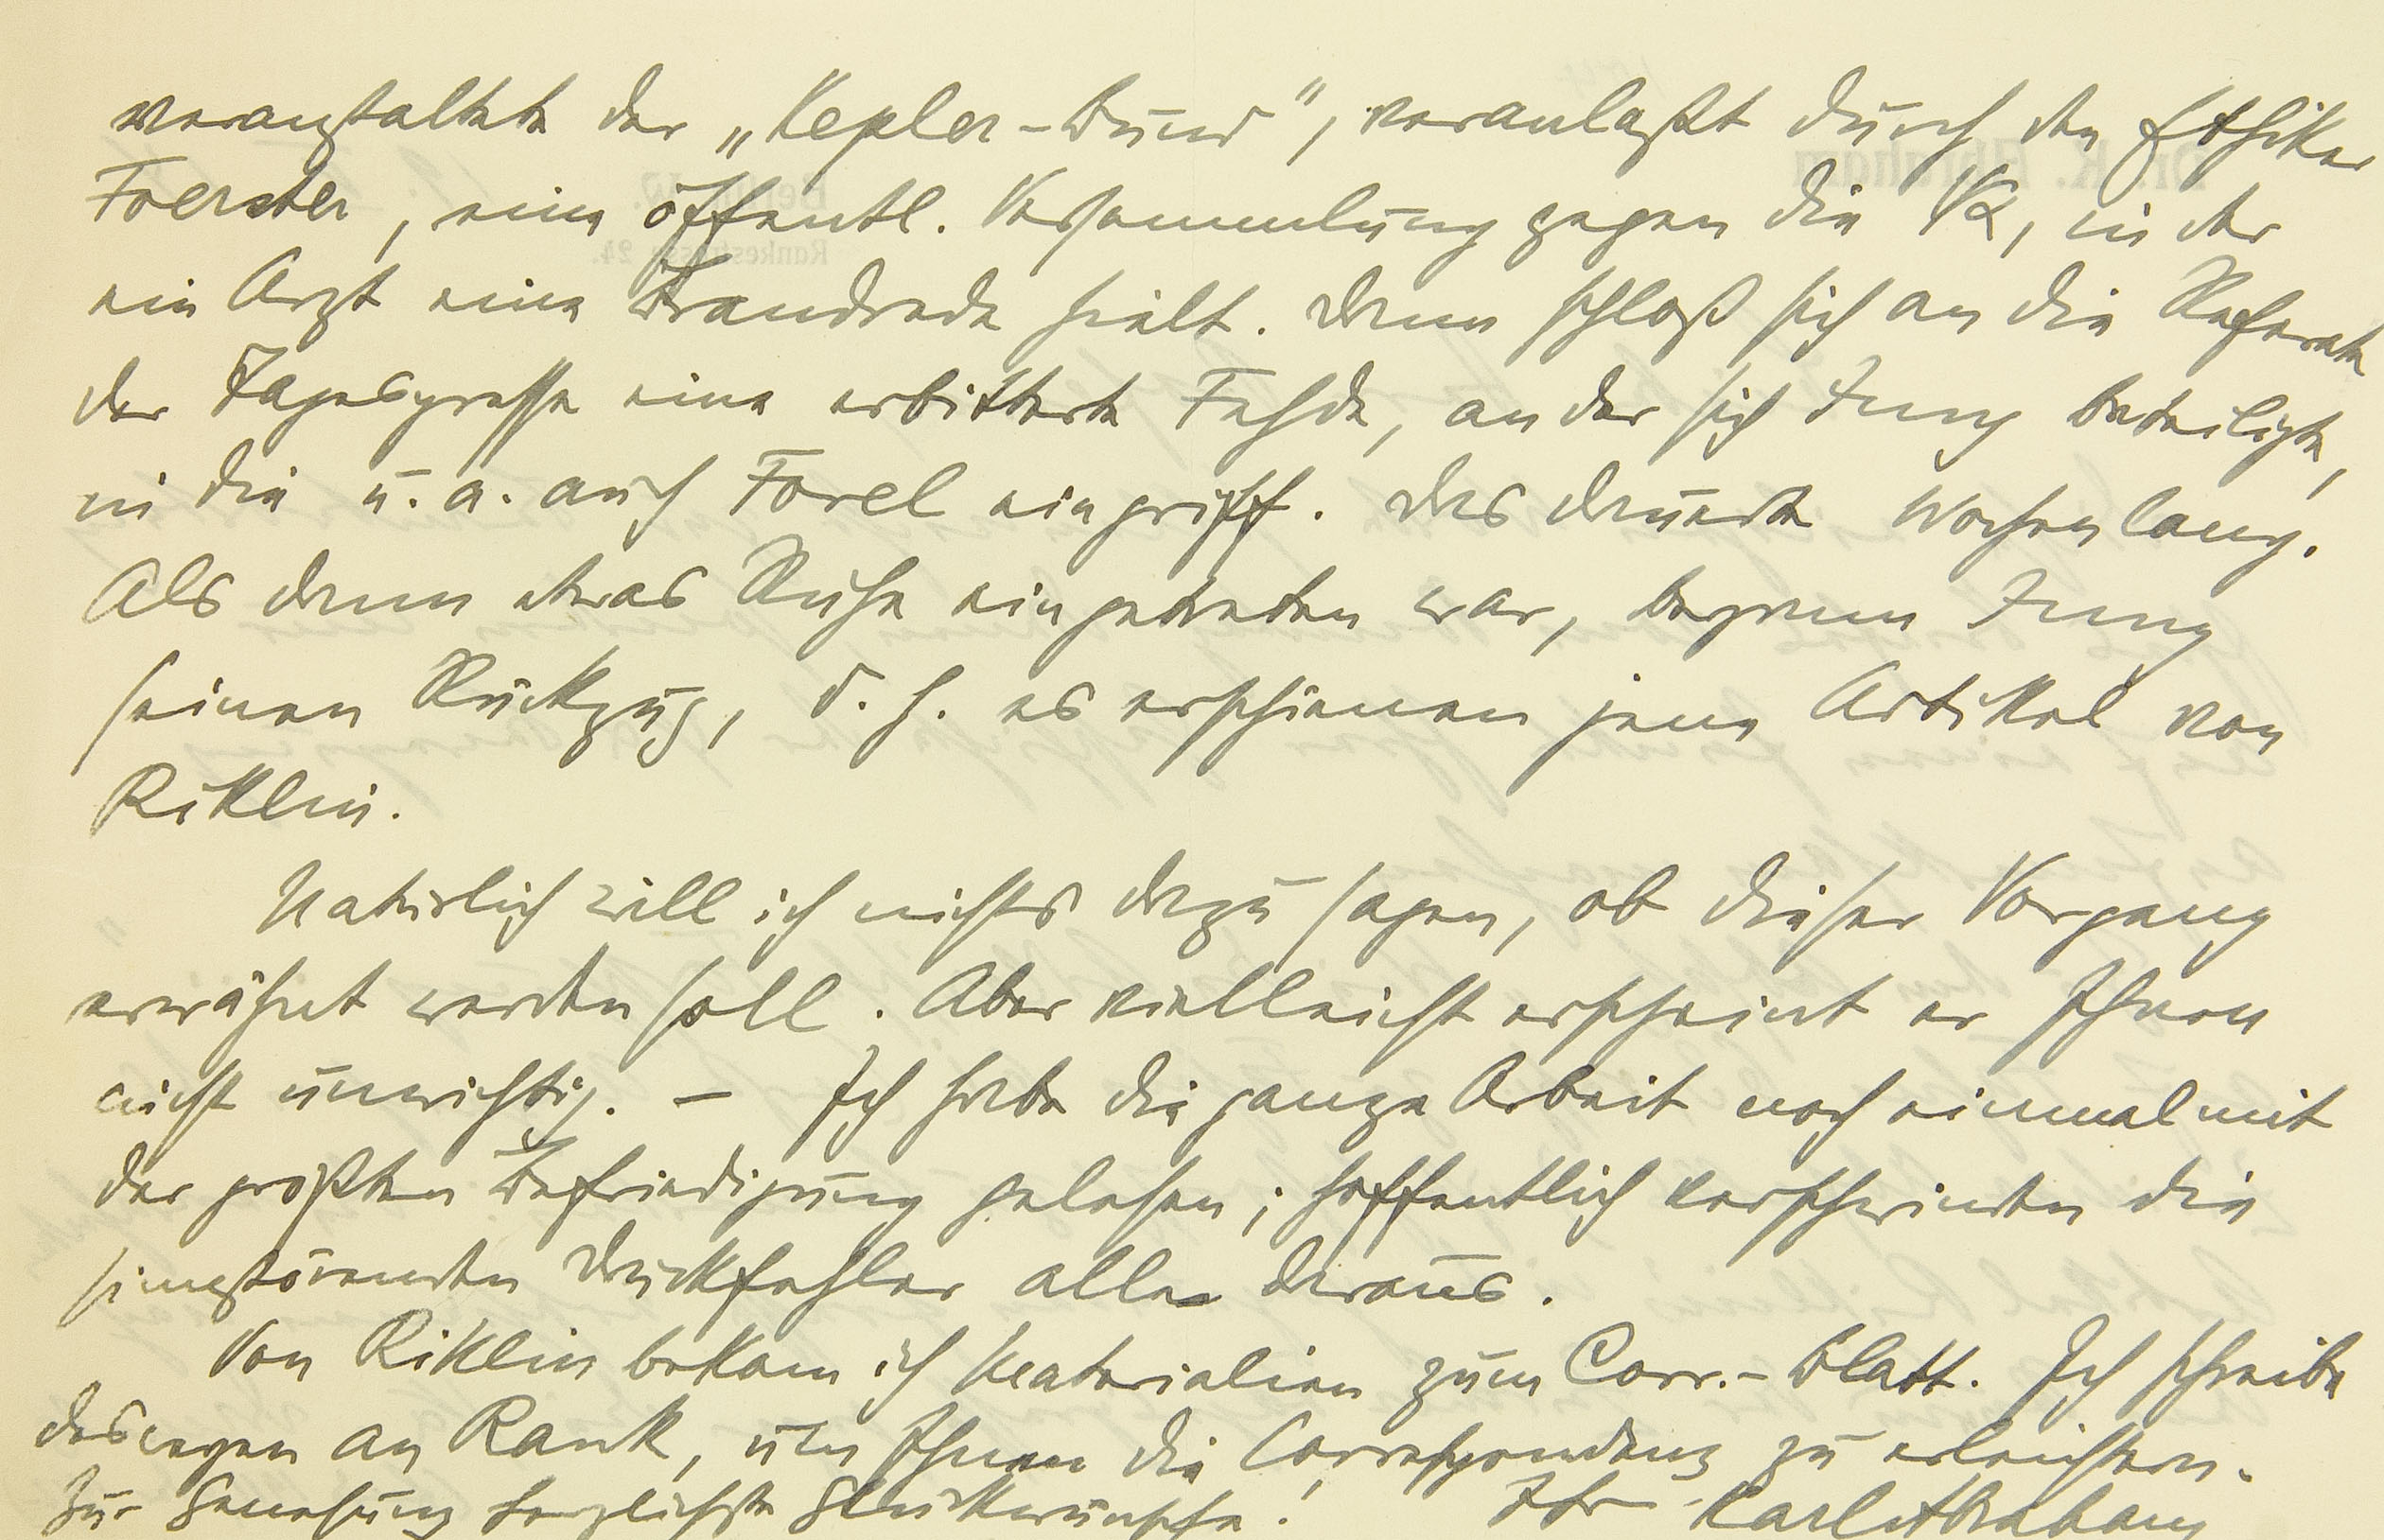 veranstaltete der „Kepler-Bund", veranlaßt durch den Ethiker
Foerster, eine öffentl. Versammlung gegen die ΨΑ, in der
ein Arzt eine Brandrede hielt. Dann schloß sich an die Referate
der Tagespresse eine erbitterte Fehde, an der sich Jung beteiligte,
in die u. a. auch Forel eingriff. Das dauerte Wochen lang.
Als dann etwas Ruhe eingetreten war, begann Jung
seinen Rückzug, d. h. es erschienen jene Artikel von
Riklin.
Natürlich will ich nichts dazu sagen, ob dieser Vorgang
erwähnt werden soll. Aber vielleicht erscheint er Ihnen
nicht unwichtig. – Ich habe die ganze Arbeit noch einmal mit
der größten Befriedigung gelesen; hoffentlich verschwinden die
sinnstörenden Druckfehler alle daraus.
Von Riklin bekam ich Materialien zum Corr.-Blatt. Ich schreibe
deswegen an Rank, um Ihnen die Correspondenz zu erleichtern.
Zur Genesung herzlichste Glückwünsche! Ihr Karl Abraham